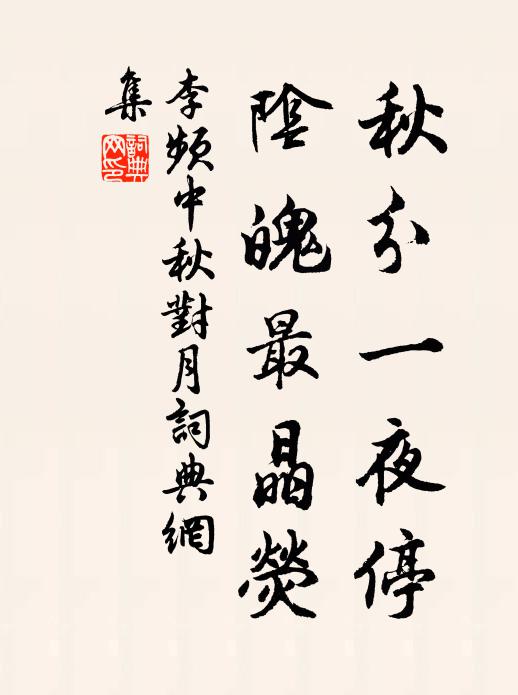 秋分一夜停
陰魄最晶熒
李頻中秋對月詞典網
集
詞典網印